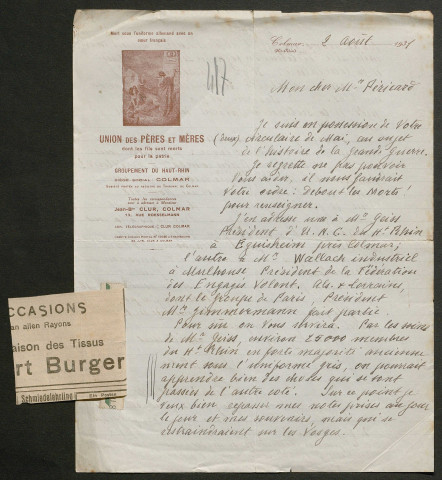 Mort sous l'uniforme allemand avec un
cœur français
UNION DES PÈRES ET MÈRES
dont les fils sont morts
pour la patrie
GROUPEMENT DU HAUT-RHIN
SIÈGE SOCIAL: COLMAR
COLMAR
417
Colmar, 2 août 19
Mon cher Mr Péricard
Je suis en possession de votre
(deux) circulaire de Mai, au sujet
de l'histoire de la Grande Guerre.
Je regrette ne pas pouvoir
vous aider, il nous faudrait
votre ordre: Debout les Morts!
pour renseigner.
J'en adresse une à Mr Geiss
Président d'U.N.C. du Ht Rhin
à Eguisheim près Colmar;
l'autre à Mr Wallach industriel
à Mulhouse Président de la Fédération
des Engagés Volont. Als. & Lorrains,
dont le groupe de Paris, Président
Mr Zimmermann fait partie.
Pour sûr on vous écrira. Par les soins
de Mr Geiss, environ 25000 membres
du Ht Rhin en forte majorité ancienne
ment sous l'uniforme gris, on pourrait
apprendre bien des choses qui se sont
passées de l'autre coté. Sur ce point je
veux bien repasser mes notes prises au jour
le jour et mes souvenirs, mais qui se
restraindraient sur les Vosges.
CCASIONS
an allen Rayons
aison des Tissus
rt Burger
Schmiedelehrling